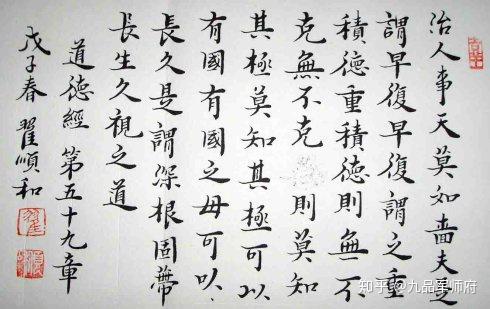 治人事天莫如嗇夫是
謂早復早復謂之重
積德重積德則無不
克無不克 則莫知
其極莫知其極可以
有國有國之母可以
長久是謂深根固蒂
長生久視之道
道德經 第五十九章
戊子春 翟順和
知乎 @九品军师府